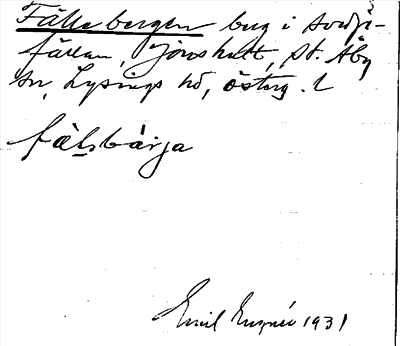 Fällebergen berg i sver
fällan, Jonshult, St. Åby
sn, Lysings hd, Östg. l
fälsbärja
Emil Engnér 1931